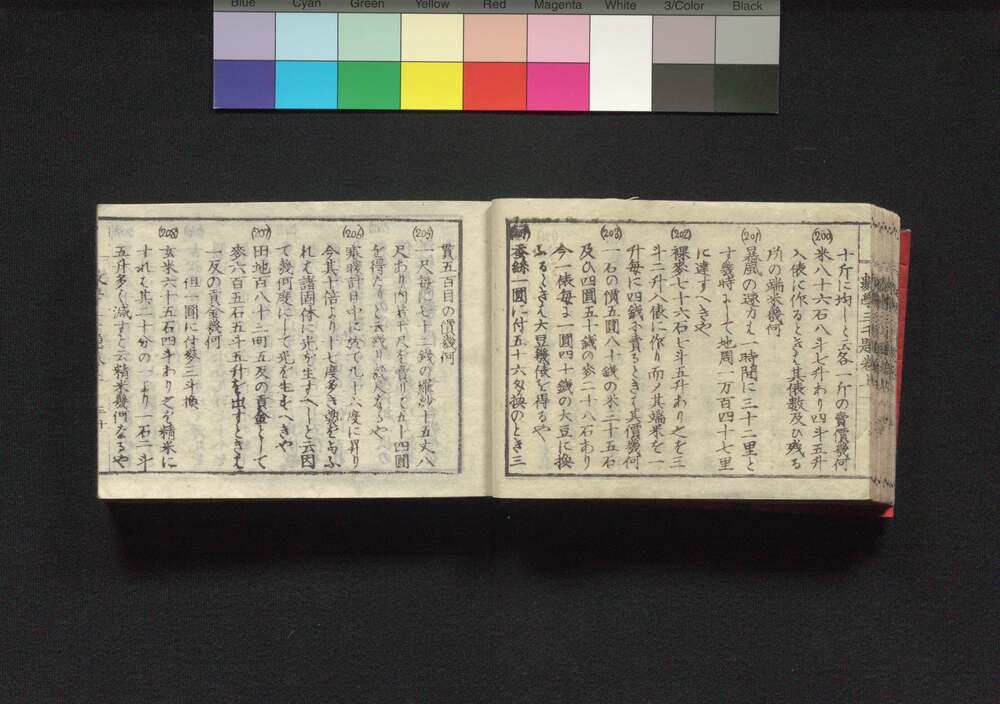 Blue Cyan Green Yellow Red Magenta White 3/Color Black
數學三千題卷
十斤に均しと云各一斤の賣價幾何
(200)
米八十六石八斗七升わり四斗五升
入俵に作るときは其俵數及ひ殘る
所の端米幾何
(201)
暴風の速力は一時間に三十二里と
す幾時にして地周一万百四十七里
に達すへきや
(202)
裸麥七十六石七斗五升わり之を三
斗二升入俵に作り而〆其端米を一
升每に四錢に賣るときは其價幾何
(203)
一石の價五圓八十錢の米二十五石
及ひ四圓五十錢の麥二十八石あり
今一俵每に一圓四十錢の大豆に換
ふるときは大豆幾俵を得るや
蚕絲一圓に付五十六匁換のとき三
貫五百目の價幾何
(205)
一尺每に七十二錢の
紗十五丈八
尺あり内若干尺を賣りて五十四圓
を得たりと云殘り幾尺なるや
(206)
寒暖計日中に於て九十六度に昇り
今其十倍より十七度多き熱を与ふ
れは諸固体に光を生すへしと云因
て幾何度にして光を生すへきや
(207)
田地百八十三町五反の貢金として
麥六百五石五斗五升を出すときは
一反の貢金幾何
但一圓に付麥三斗換
(208)
玄米六十五石四斗わり之を精米に
すれは其二十分の一より一石二斗
五升多く減すと云精米幾何なるや